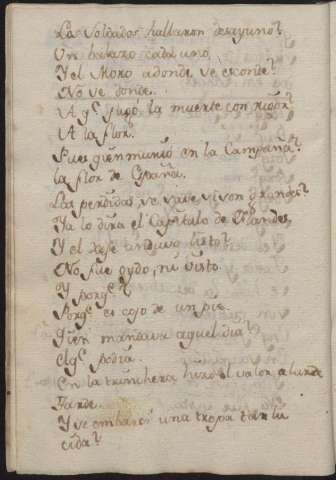 Los Soldados hallaron desayuno?
Un balazo cada uno.
Y el Moro adonde se esconde?
No sé donde.
A qe. jugó la muerte con rigor?
A la flor.
Pues quien murió en la Campaña?
la flor de España.
Las perdidas se save si son grandes?
Ya lo dira el Capitulo de Flandes,
Y el Xefe anduvo listo?
No fue oydo, ni visto.
Y porqe.?
Porqe. es cojo de un pie.
Quien mandava aquel dia?
El qe. podia.
En la trinchera hizo el valor alarde
Tarde.
Y se embarcó una tropa tan lu
cida?